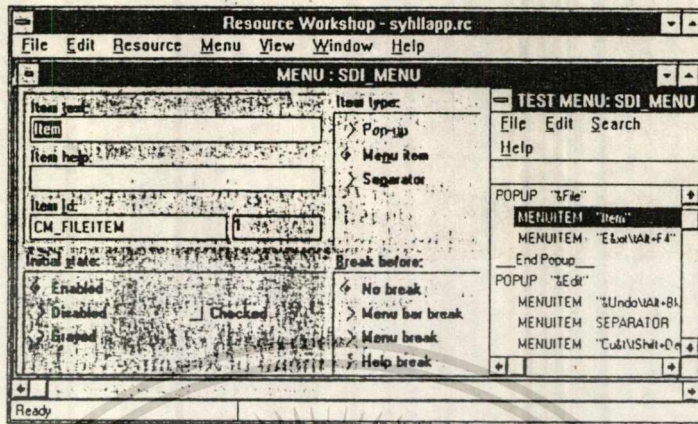 Resource Workshop - syhllapp.rc
File Edit Resource Menu View Window Help
MENU : SDI_MENU
Item text:
Item
Item help:
Item Id:
CM_FILEITEM
1
Initial state:
Enabled
Disabled
Grayed
Checked
Item type:
Pop-up
Menu item
Separator
Break before:
No break
Menu bar break
Menu break
Help break
TEST MENU: SDI_MENU
File Edit Search
Help
POPUP "&File"
MENUITEM "Item"
MENUITEM "E&xit\tAlt+F4"
__End Popup__
POPUP "&Edit"
MENUITEM "&Undo\tAlt+Bk
MENUITEM SEPARATOR
MENUITEM "Cu&t\tShift+De
Ready